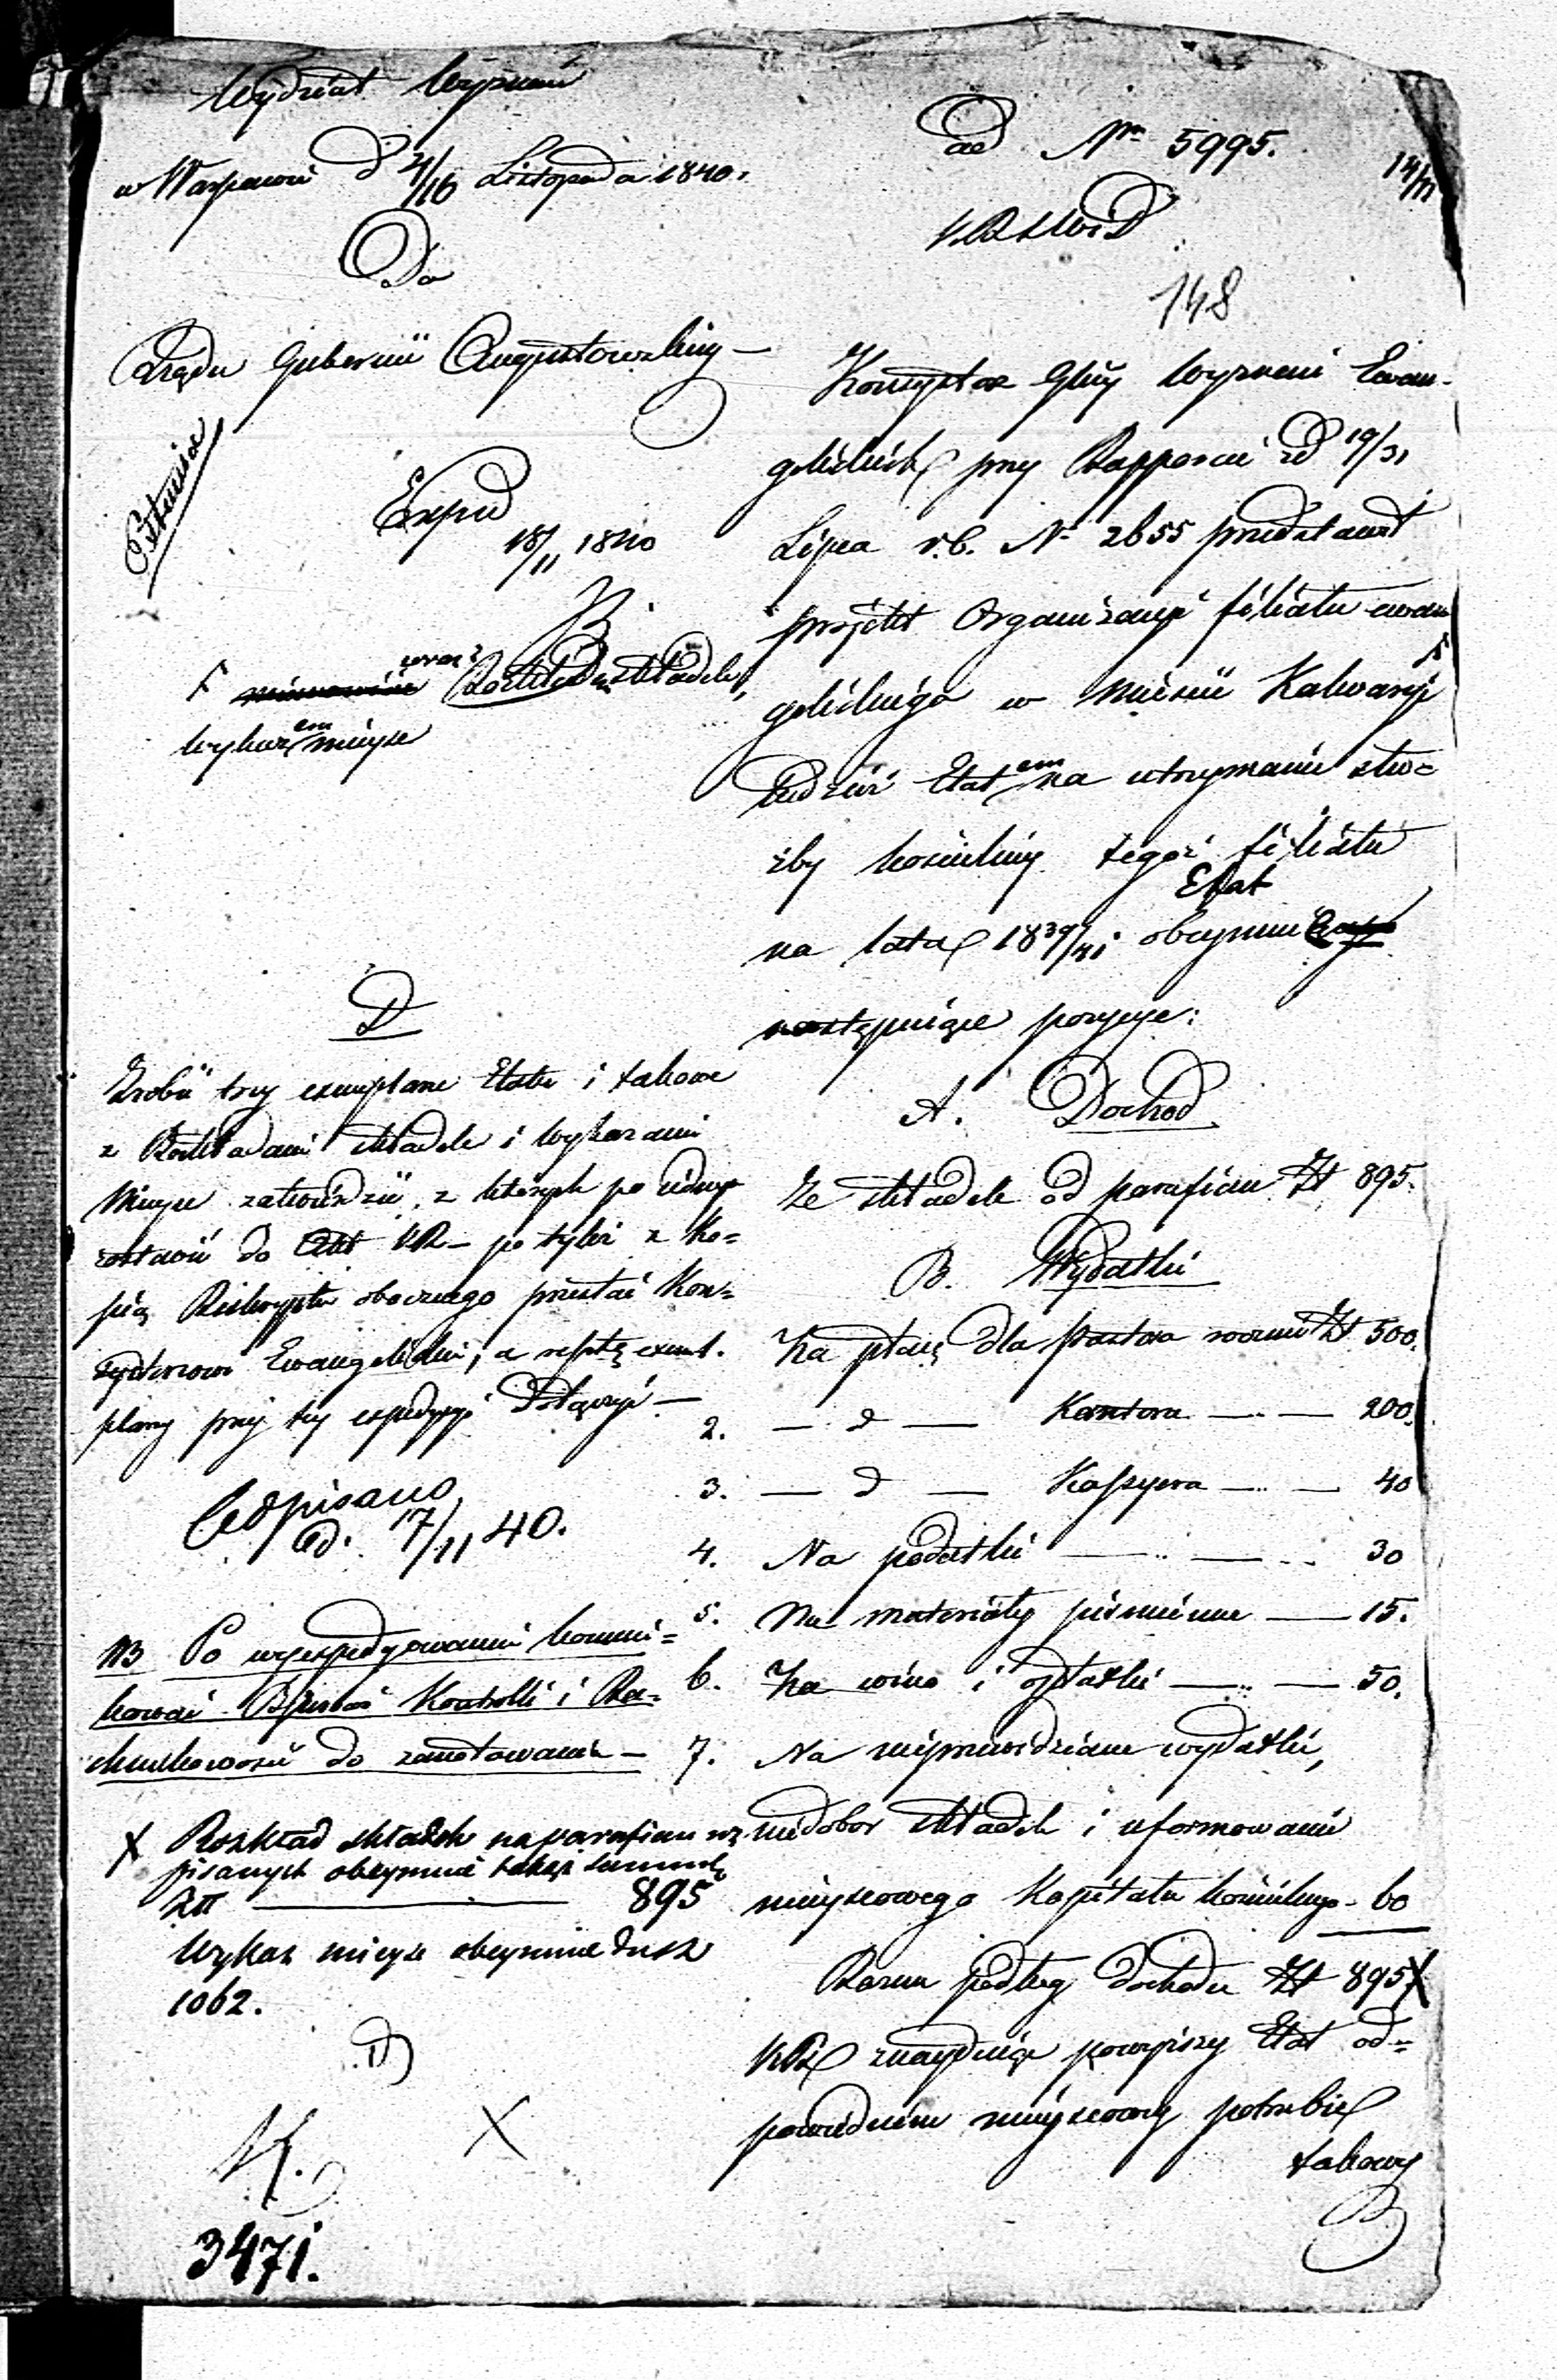 Wydział Wyznań
w Warszawie d 4/16 Listopada 1840.
Do
Rządu Gubernii Augustowskiey
Exped
18/11 1840
wraz z Rozkładem składek,
wykazem mieysc
D
Zrobić trzy exemplarze Etatu i takowe
z Rozkładami składek i wykazami
Mieysc zatwierdzić, z których po iednym
zostawić do Akt KR – po tyleż z ko=
pią Reskryptu obocznego przesłać Kon=
systorzowi Ewangelickiemu, a resztę exem.
plarzy przy tey expedycyi dołączyć –
Odpisano
d. 17/11 40.
NB Po wyexpedyowaniu kommuni=
kować Kontrolli i Ra=
chunkowości do zanotowania –
X Rozkład składek na parafian roz
pisanych obeymuie takąż summę
Złt — 895
Wykaz mieysc obeymuie dusz
1062.
3471.
ad Nr 5995.
14/11
K.R.S.W.i D
148
Konsystorz Głny Wyznań Ewan-
gelickich przy Rapporcie z d 19/31
Lipca r.b. Nr 2655 przedstawił
projekt Organizacyi filiału ewan
gelickiego w Mieście Kalwaryi
tudzież Etatem na utrzymanie słu=
żby kościelney tegoż filiału
Etat
na lata 1839/41 obeymuie
następuiące pozycye:
A. Dochod
Ze składek od parafian Zł 895.
B. Wydatki
Na płacę dla Pastora rocznie Zł 500.
2. — d — Kantora — 200.
3. — d — Kassyera — 40
4. Na podatki — 30
5. Na materiały piśmienne — 15.
6. Na wino i opłatki — 50.
7. Na nieprzewidziane wydatki,
niedobor składek i uformowanie
mieyscowego Kapitału kościelnego – 60
Razem podług dochodu Zł 895 X
KR znayduiąc powyższy Etat od=
powiednim mieyscowey potrzebie
takowy